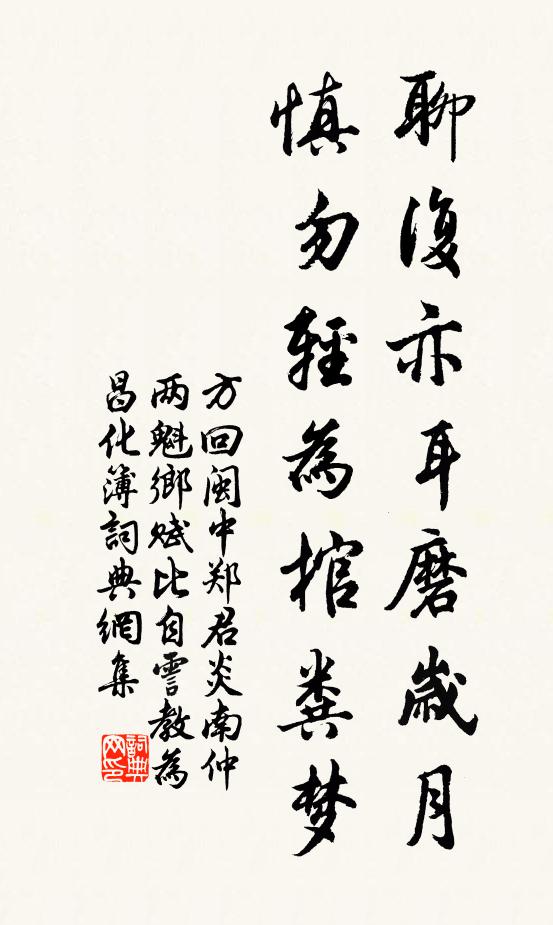 聊復亦耳磨歲月
慎勿輕為棺糞梦
方回闽中郑君炎南仲
两魁鄉赋比自霅教為
昌化簿詞典網集
詞典网印